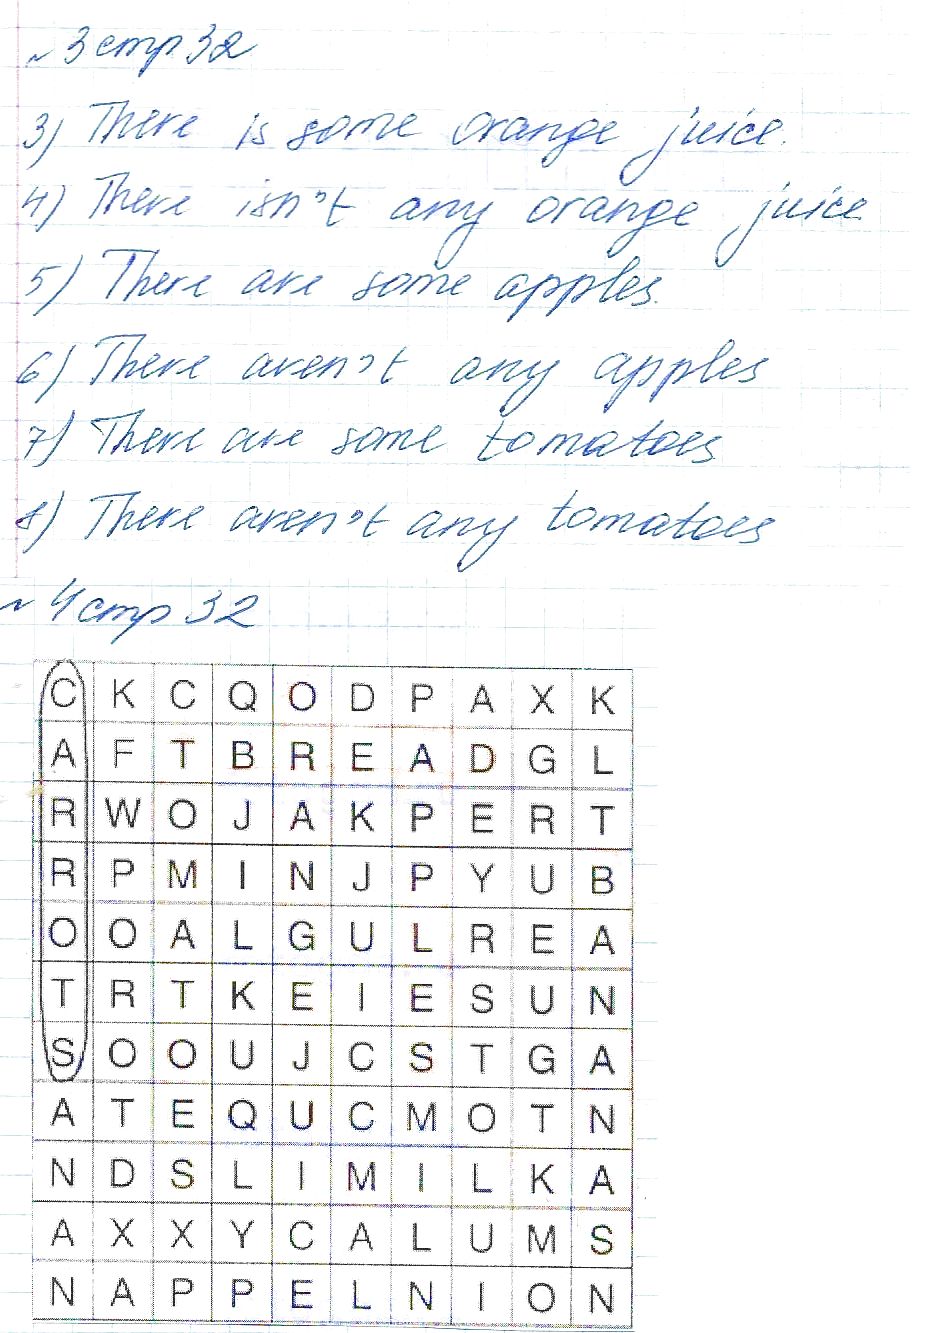 ~ 3 стр 32
3) There is some orange juice.
4) There isn't any orange juice
5) There are some apples.
6) There aren't any apples
7) There are some tomatoes
8) There aren't any tomatoes
~ 4 стр 32
C K C Q O D P A X K
A F T B R E A D G L
R W O J A K P E R T
R P M I N J P Y U B
O O A L G U L R E A
T R T K E I E S U N
S O O U J C S T G A
A T E Q U C M O T N
N D S L I M I L K A
A X X Y C A L U M S
N A P P E L N I O N